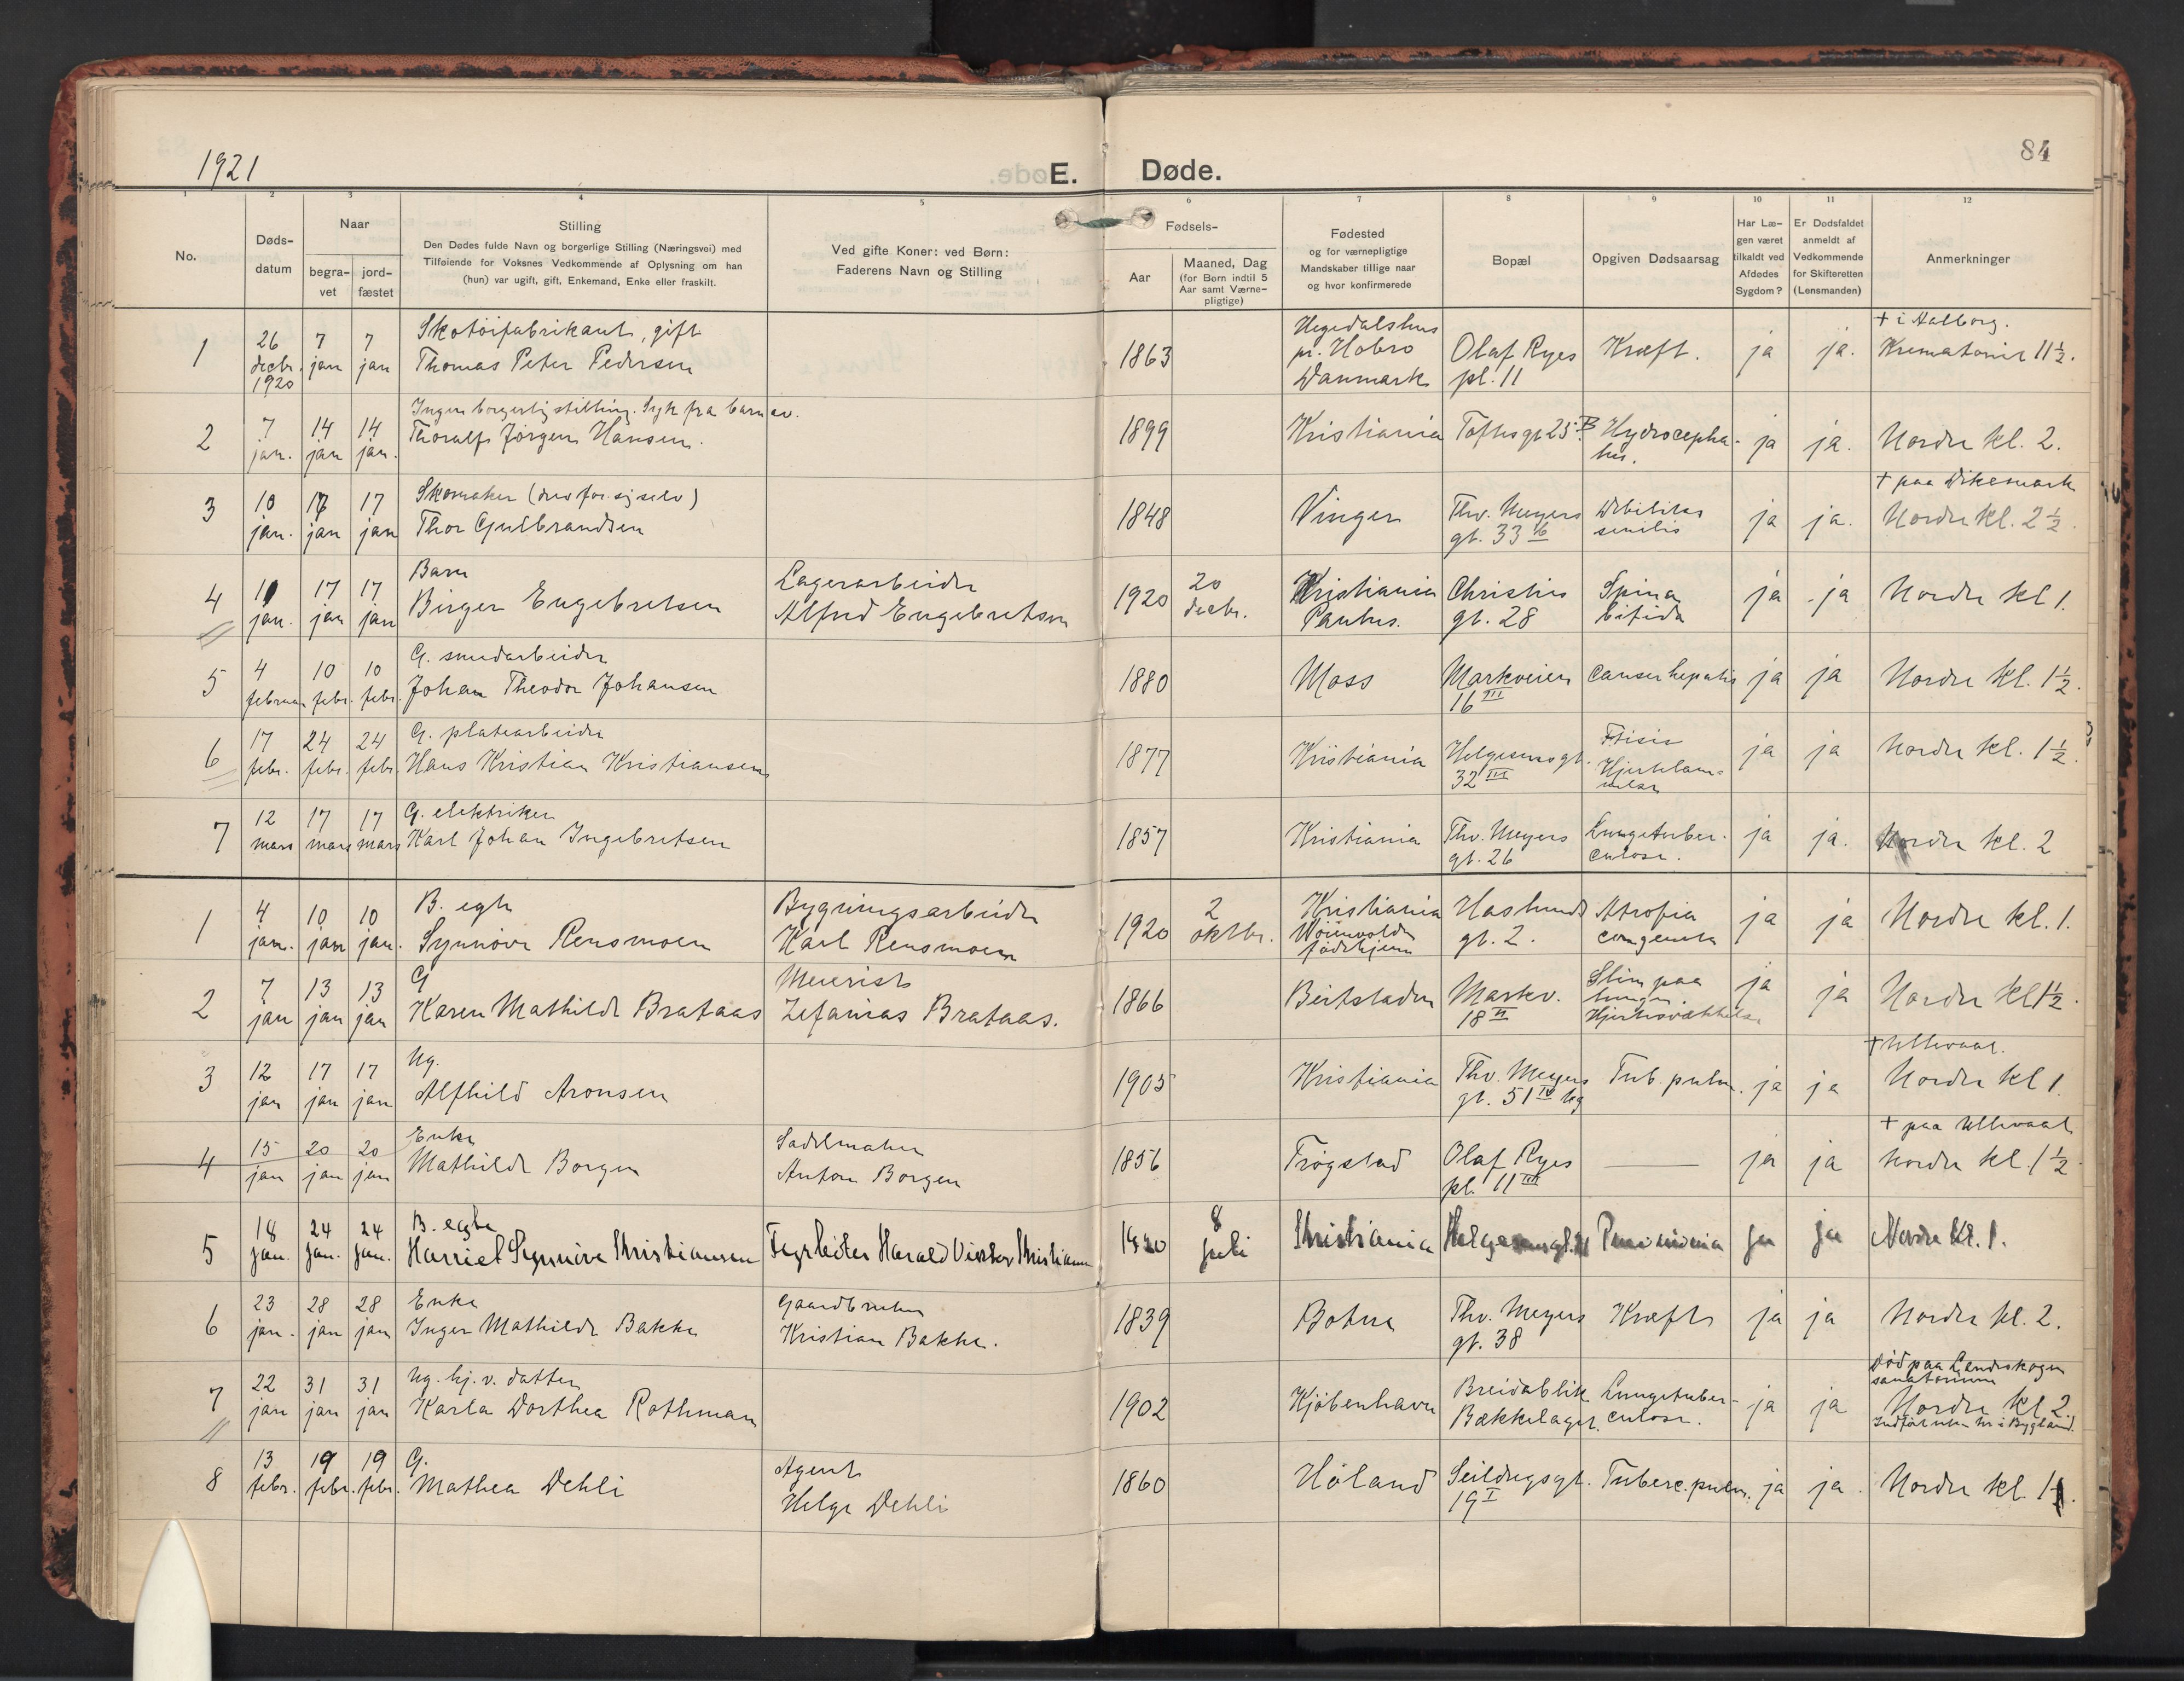 1921
E. Døde.
84
1 2 3 4 5 6 7 8 9 10 11 12
No.
Døds-
datum
Naar
begra-
vet
jord-
fæstet
Stilling
Den Dødes fulde Navn og borgerlige Stilling (Næringsvei) med
Tilføiende for Voksnes Vedkommende af Oplysning om han
(hun) var ugift, gift, Enkemand, Enke eller fraskilt.
Ved gifte Koner: ved Børn:
Faderens Navn og Stilling
Fødsels-
Aar
Maaned, Dag
(for Børn indtil 5
Aar samt Værne-
pligtige)
Fødested
og for værnepligtige
Mandskaber tillige naar
og hvor konfirmerede
Bopæl
Opgiven Dødsaarsag
Har Læ-
gen været
tilkaldt ved
Afdødes
Sygdom?
Er Dødsfaldet
anmeldt af
Vedkommende
for Skifteretten
(Lensmanden)
Anmerkninger
1
26
decbr.
1920
7
jan
7
jan
Skotöifabrikant, gift
Thomas Peter Pedersen
1863
Hegedalshus
pr. Hobro
Danmark
Olaf Ryes
pl. 11
Kræft.
ja
ja.
+ i Aalborg.
Krematoriet 11 1/2.
2
7
jan.
14
jan
14
jan.
Ingen borgerlig stilling. Syk fra barn av.
Thoralf Jörgen Hansen.
1899
Kristiania
Toftesgt 25 B.
Hydrocepha-
lus.
ja
ja.
Nordre kl. 2.
3
10
jan.
17
jan
17
jan
Skomaker (drev for sig selv)
Thor Gulbrandsen
1848
Vinger
Thv. Meyers
gt. 33
Debilitas
senilis
ja
ja.
+ paa Dikemark
Nordre kl. 2 1/2.
4
jan.
17
jan
17
jan
Barn
Birger Engebretsen
Lagerarbeider
Alfred Engebretsen
1920
20
decbr.
Kristiania
Christies
gt. 28
Spina
bifida
ja
ja
Nordre kl 1.
5
4
februar
10
febr.
10
febr.
G. smedarbeider
Johan Theodor Johansen
1880
Moss
Markveien
16 III
Canser hepatis
ja
ja
Nordre kl. 1 1/2.
6
17
febr.
24
febr.
24
febr.
G. platearbeider
Hans Kristian Kristiansen
1877
Kristiania
Helgesensgt.
32 III
Ftisis
Hjertelam-
melse
ja
ja
Nordre kl. 1 1/2.
7
12
mars
17
mars
17
mars
G. elektriker
Karl Johan Ingebretsen
1857
Kristiania
Thv. Meyers
gt. 26
Lungetuber-
culose.
ja
ja.
Nordre kl. 2
1
4
jan.
10
jan
10
jan.
B. egte
Synnöve Rensmoen
Bygningsarbeider
Karl Rensmoen
1920
2
oktbr.
Kristiania
födehjem
Haslunds
gt. 2.
Atrofia
congenita
ja
ja
Nordre kl. 1.
2
7
jan
13
jan
13
jan
G
Karen Mathilde Brataas
Meierist
Zefanias Brataas.
1866
Beitstaden
Markv.
18 II
Slim paa
lungen.
Hjertesvækkelse
ja
ja
Nordre kl 1 1/2.
3
12
jan
17
jan
17
jan
Ug.
Alfhild Aronsen
1905
Kristiania
Thv. Meyers
gt. 51 IV
Tub. pulm.
ja
ja
+ Ullevaal.
Nordre kl 1.
4
15
jan
20
jan
20
jan
Enke
Mathilde Borgen
Sadelmaker
Anton Borgen
1856
Trögstad
Olaf Ryes
pl. 11 III
ja
ja
+ paa Ullevaal
Nordre kl. 1 1/2
5
18
jan.
24
jan.
24
jan.
B. egte
Harriet Synnöve Kristiansen
Harald Victor Kristiansen
1920
8
juli
Kristiania
Pneumonia
ja
ja
Nordre Kl. 1.
6
23
jan.
28
jan
28
jan
Enke
Inger Mathilde Bakke
Gaardbruker
Kristian Bakke.
1839
Botne
Thv. Meyers
gt. 38
Kræft
ja
ja
Nordre kl. 2.
7
22
jan
31
jan
31
jan
Ug. hj. v. datter
Karla Dorthea Rothman
1902
Kjöbenhavn
Breidablik
Bækkelaget.
Lungetuber-
culose.
ja
ja
Död paa Landeskogen
sanatorium
Nordre kl 2.
Indfört uten Nr i Bygland.
8
13
febr.
19
febr.
19
febr.
G.
Mathea Dehli
Agent
Helge Dehli
1860
Höland
Seildugsgt.
19 I
Tuberc. pulm.
ja
ja.
Nordre kl. 1.